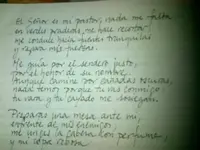 El Señor es mi pastor, nada me falta
en verdes praderas, me hace recostar
me conduce hacia fuentes tranquilas
y repara mis fuerzas.
Me guía por el sendero justo,
por el honor de su nombre.
Aunque camine por cañadas oscuras,
nada temo porque tú vas conmigo:
tu vara y tu cayado me sosiegan.
Preparas una mesa ante mí,
enfrente de mis enemigos
me unges la cabeza con perfume
y mi copa rebosa.